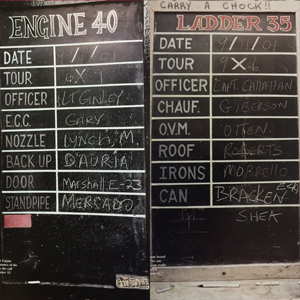 ENGINE 40
DATE 9/11/01
TOUR 6X9
OFFICER LT GINLEY
E.C.C. GARY
NOZZLE LYNCH, M.
BACK UP D'AURIA
DOOR MARSHALL E-23
STANDPIPE MERCADO
CARRY A CHOCK!!
LADDER 35
DATE 9/11/01
TOUR 9X6
OFFICER CAPT. CALLAHAN
CHAUF. GIBERSON
O.V.M. OTTEN
ROOF ROBERTS
IRONS MORELLO
CAN BRACKEN
SHEA